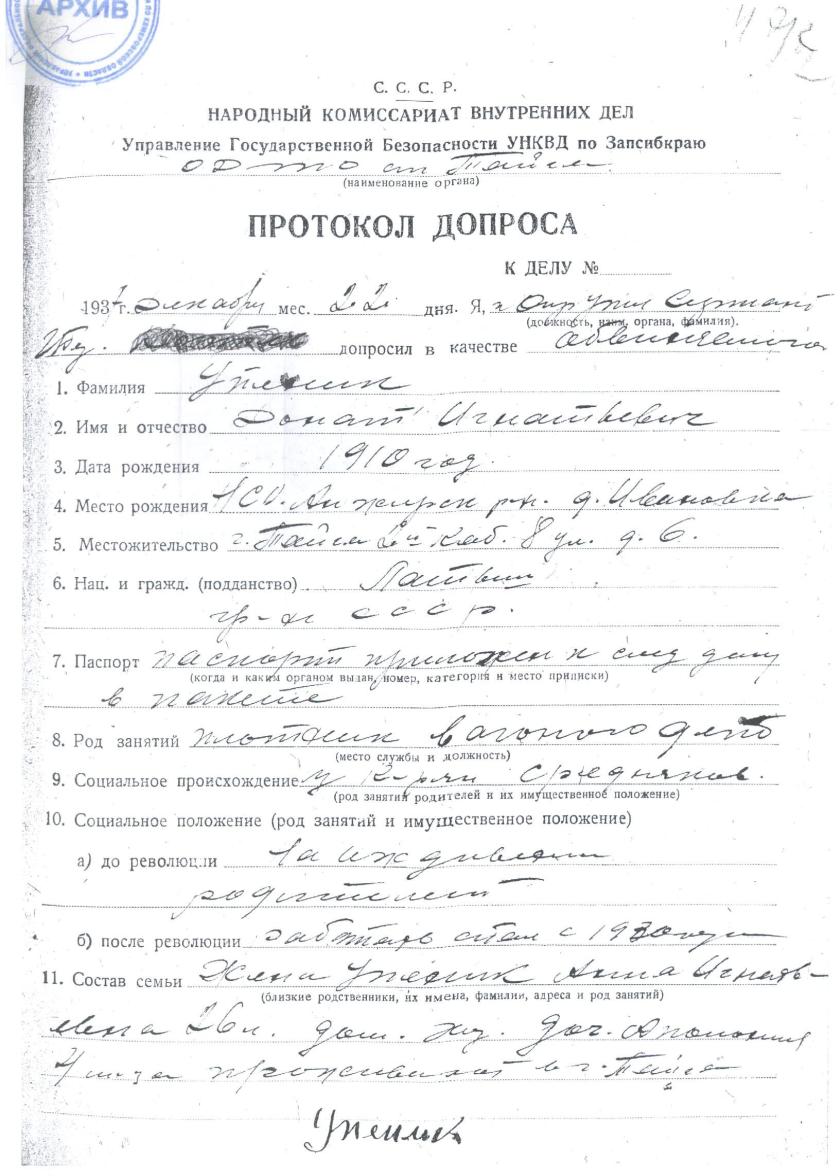 АРХИВ
С. С. С. Р.
НАРОДНЫЙ КОМИССАРИАТ ВНУТРЕННИХ ДЕЛ
Управление Государственной Безопасности УНКВД по Запсибкраю
ОДТО ст Тайга
(наименование органа)
ПРОТОКОЛ ДОПРОСА
К ДЕЛУ №
1937 г. декабря мес. 22 дня. Я,
(должность, наим. органа, фамилия).
допросил в качестве обвиняемого
1. Фамилия Упеник
2. Имя и отчество Донат Игнатьевич
3. Дата рождения 1910 год.
4. Место рождения Анжерск рн. д. Ивановка
5. Местожительство г. Тайга 8 ул. д. 6.
6. Нац. и гражд. (подданство) Латыш
гр-н СССР.
7. Паспорт паспорт приложен к след делу
(когда и каким органом выдан, номер, категория и место приписки)
в пакете
8. Род занятий плотник вагоного депо
(место службы и должность)
9. Социальное происхождение из кр-ян средняков.
(род занятий родителей и их имущественное положение)
10. Социальное положение (род занятий и имущественное положение)
а) до революции на иждивении
родителей
б) после революции работать стал с 1930 года
11. Состав семьи Жена Упеник Анна Игнать-
(близкие родственники, их имена, фамилии, адреса и род занятий)
евна 26 л. дом. хоз. доч. Аполония
проживают в г. Тайга
Упеник